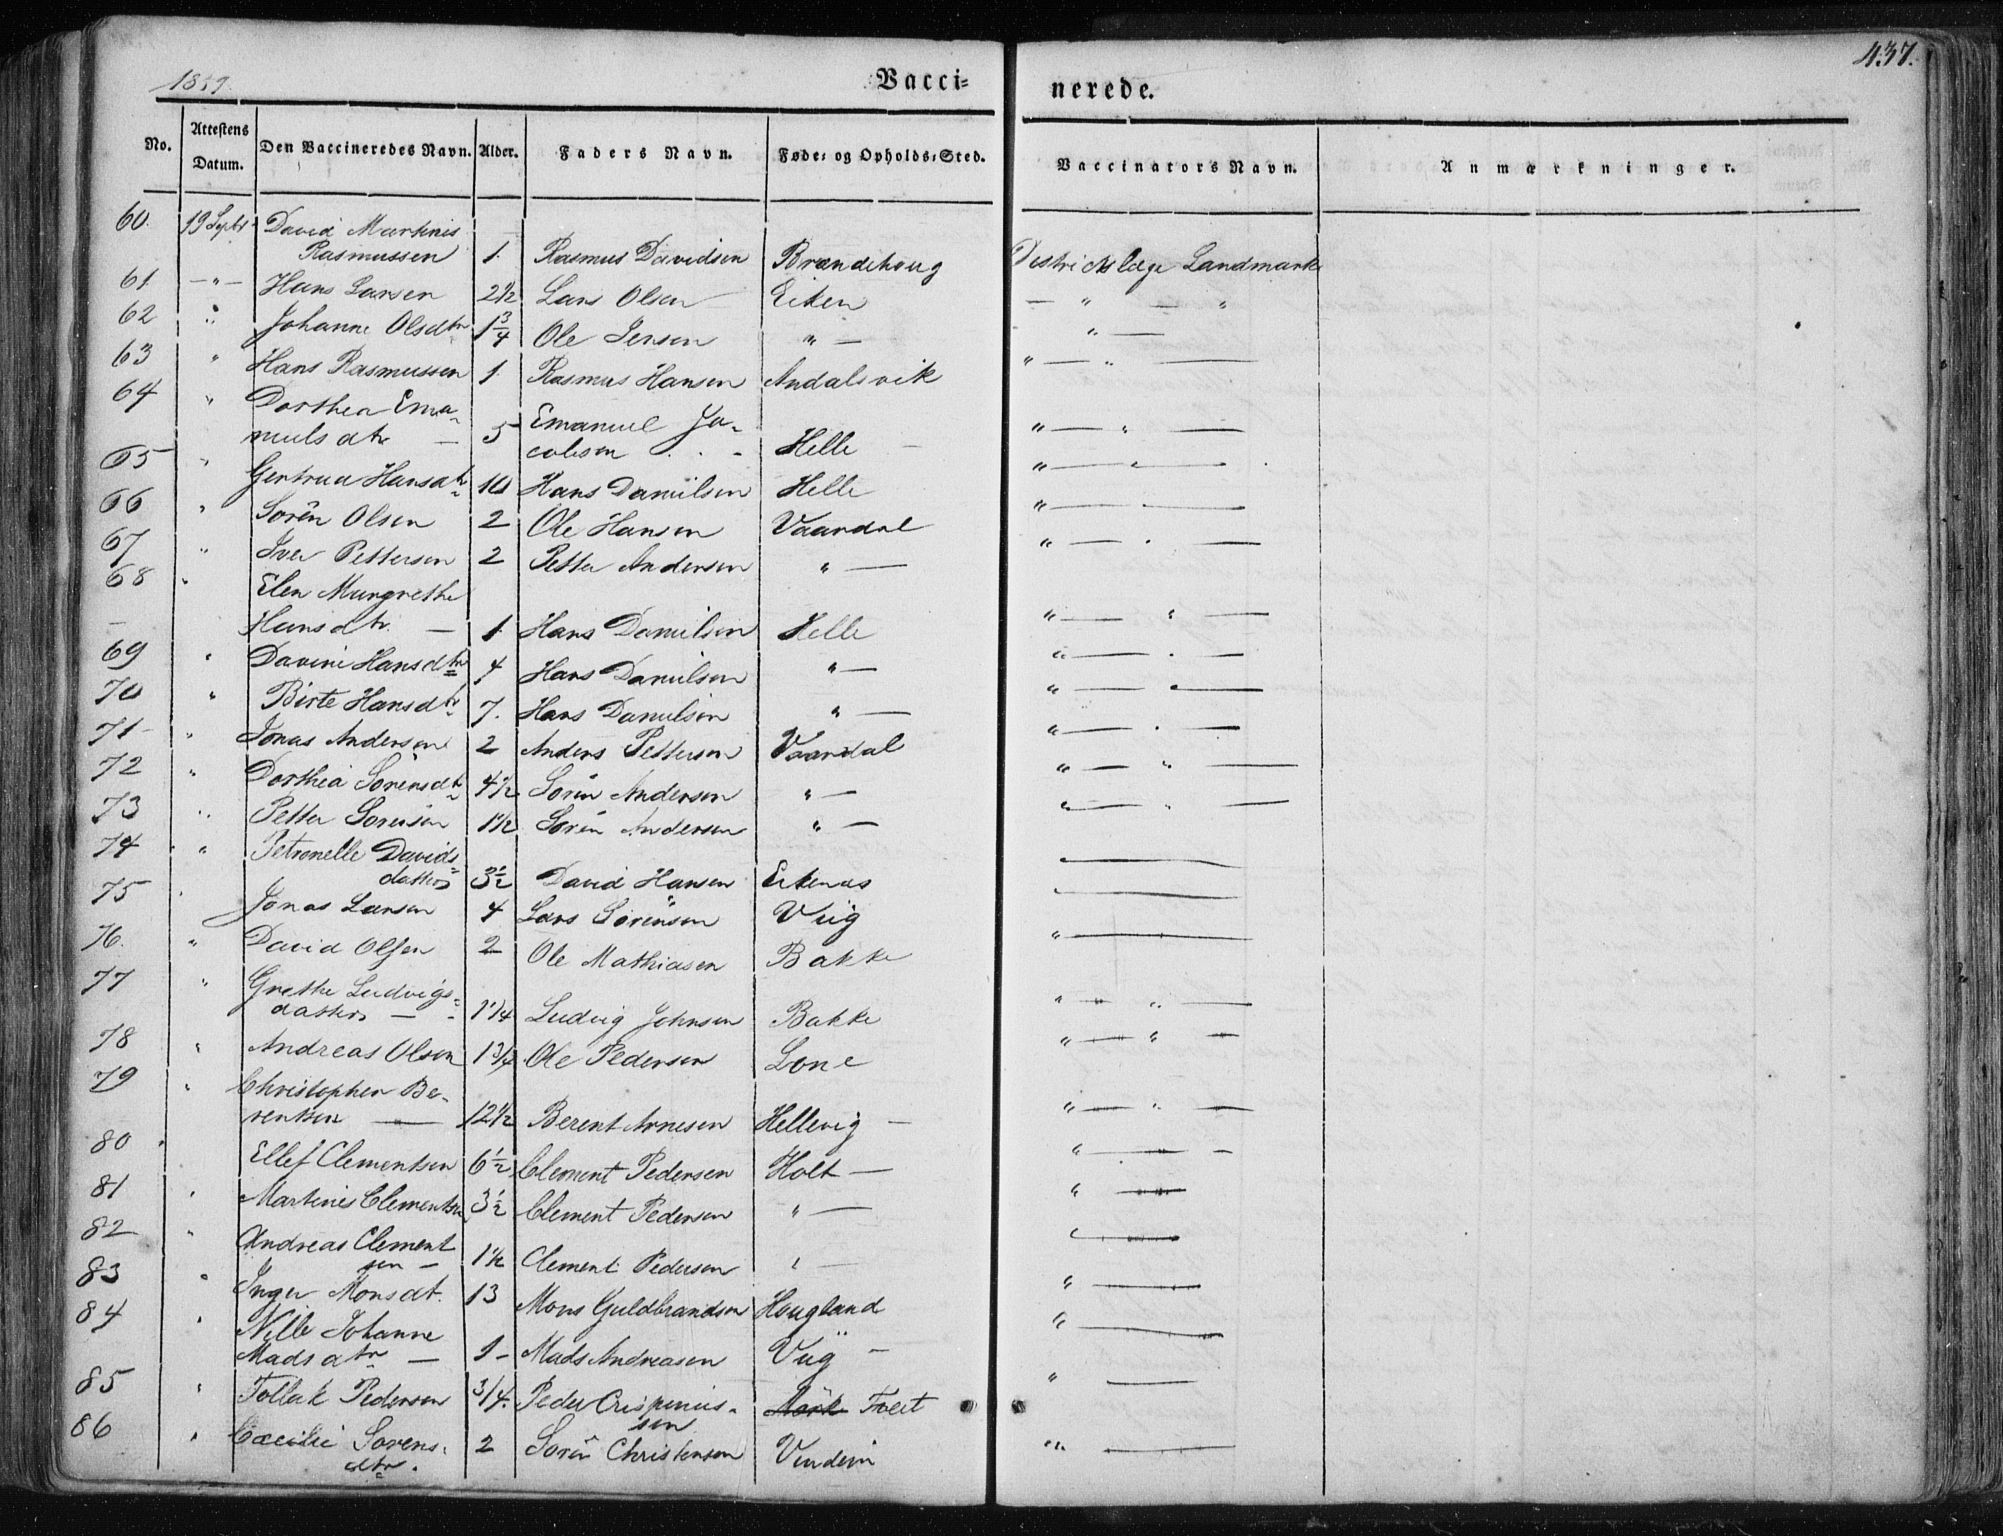 437.
1859.
Vacci=
nerede.
No. Attestens Datum. Den Vaccineredes Navn. Alder. Faders Navn. Føde= og Opholds=Sted. Vaccinators Navn. Anmærkninger.
60. 19 Septbr David Martinis
Rasmussen 1. Rasmus Davidsen Brændehoug Districtslæge Landmark
61 —"— Hans Larsen 2½ Lars Olsen Eiken — " — "
62 " Johanne Olsdtr 1¾ Ole Jensen " — " —
63 " Hans Rasmussen 1. Rasmus Hansen Andalsvik " — " —
64 " Dorthea Ema-
nuelsdtr — 5 Emanuel Ja-
cobsen Helle " — " —
65 " Gertrud Hansdtr 10 Hans Danielsen Helle " — " —
66 " Sören Olsen 2 Ole Hansen Vaardal " — " —
67 " Iver Pettersen 2 Petter Andersen " — " — " —
68 " Elen Margrethe
Hansdtr. — 1. Hans Danielsen Helle " — " —
69 " Davine Hansdtr 4 Hans Danielsen " — " — " —
70 " Birte Hansdtr 7. Hans Danielsen " — " — " —
71 " Jonas Andersen 2 Anders Pettersen Vaardal " — " —
72 " Dorthea Sörensdtr 4½ Sören Andersen " — " — " —
73 " Petter Sörensen 1½ Sören Andersen " — " — " —
74 " Petronelle Davids=
datter 3½ David Hansen Eikenæs —
75 " Jonas Larsen 4 Lars Sörensen Viig —
76. " David Olsen 2 Ole Mathiasen Bakke " —
77 " Grethe Ludvigs=
datter — 1¼ Ludvig Johnsen Bakke " — " —
78 " Andreas Olsen 1¾ Ole Pedersen Lone " — " —
79 " Christopher Be-
rentsen — 12½ Berent Arnesen Hellevig — " — " —
80 " Ellef Clementsen 6½ Clement Pedersen Holt — " — " —
81 " Martines Clementsen 3½ Clement Pedersen " — " —
82 " Andreas Clement
sen — 1½ Clement Pedersen " — " —
83 " Inger Monsdt. 13 Mons Guldbrandsen Hougland " —
84 " Nille Johanne
Madsdtr — 1 — Mads Andreasen Viig — " —
85 " Tollak Pedersen 3/4. Peder Crispinius-
sen Tveit " —
86 " Cæcilie Sörens-
dtr. 2 Sörën Christensen Vindein " —